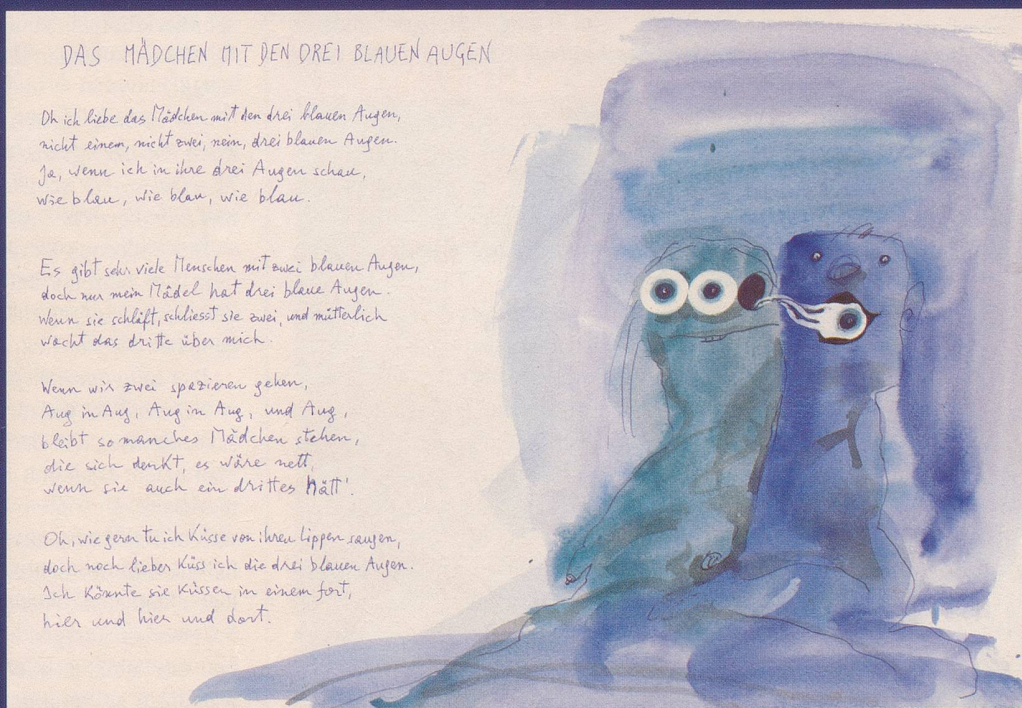 DAS MÄDCHEN MIT DEN DREI BLAUEN AUGEN
Oh ich liebe das Mädchen mit den drei blauen Augen,
nicht einem, nicht zwei, nein, drei blauen Augen.
Ja, wenn ich in ihre drei Augen schau,
wie blau, wie blau, wie blau.
Es gibt sehr viele Menschen mit zwei blauen Augen,
doch nur mein Mädel hat drei blaue Augen.
Wenn sie schläft, schliesst sie zwei, und mütterlich
wacht das dritte über mich.
Wenn wir zwei spazieren gehen,
Aug in Aug, Aug in Aug, und Aug,
bleibt so manches Mädchen stehen,
die sich denkt, es wäre nett,
wenn sie auch ein drittes hätt'.
Oh, wie gern tu ich Küsse von ihren Lippen saugen,
doch noch lieber Küss ich die drei blauen Augen.
Ich Könnte sie Küssen in einem fort,
hier und hier und dort.